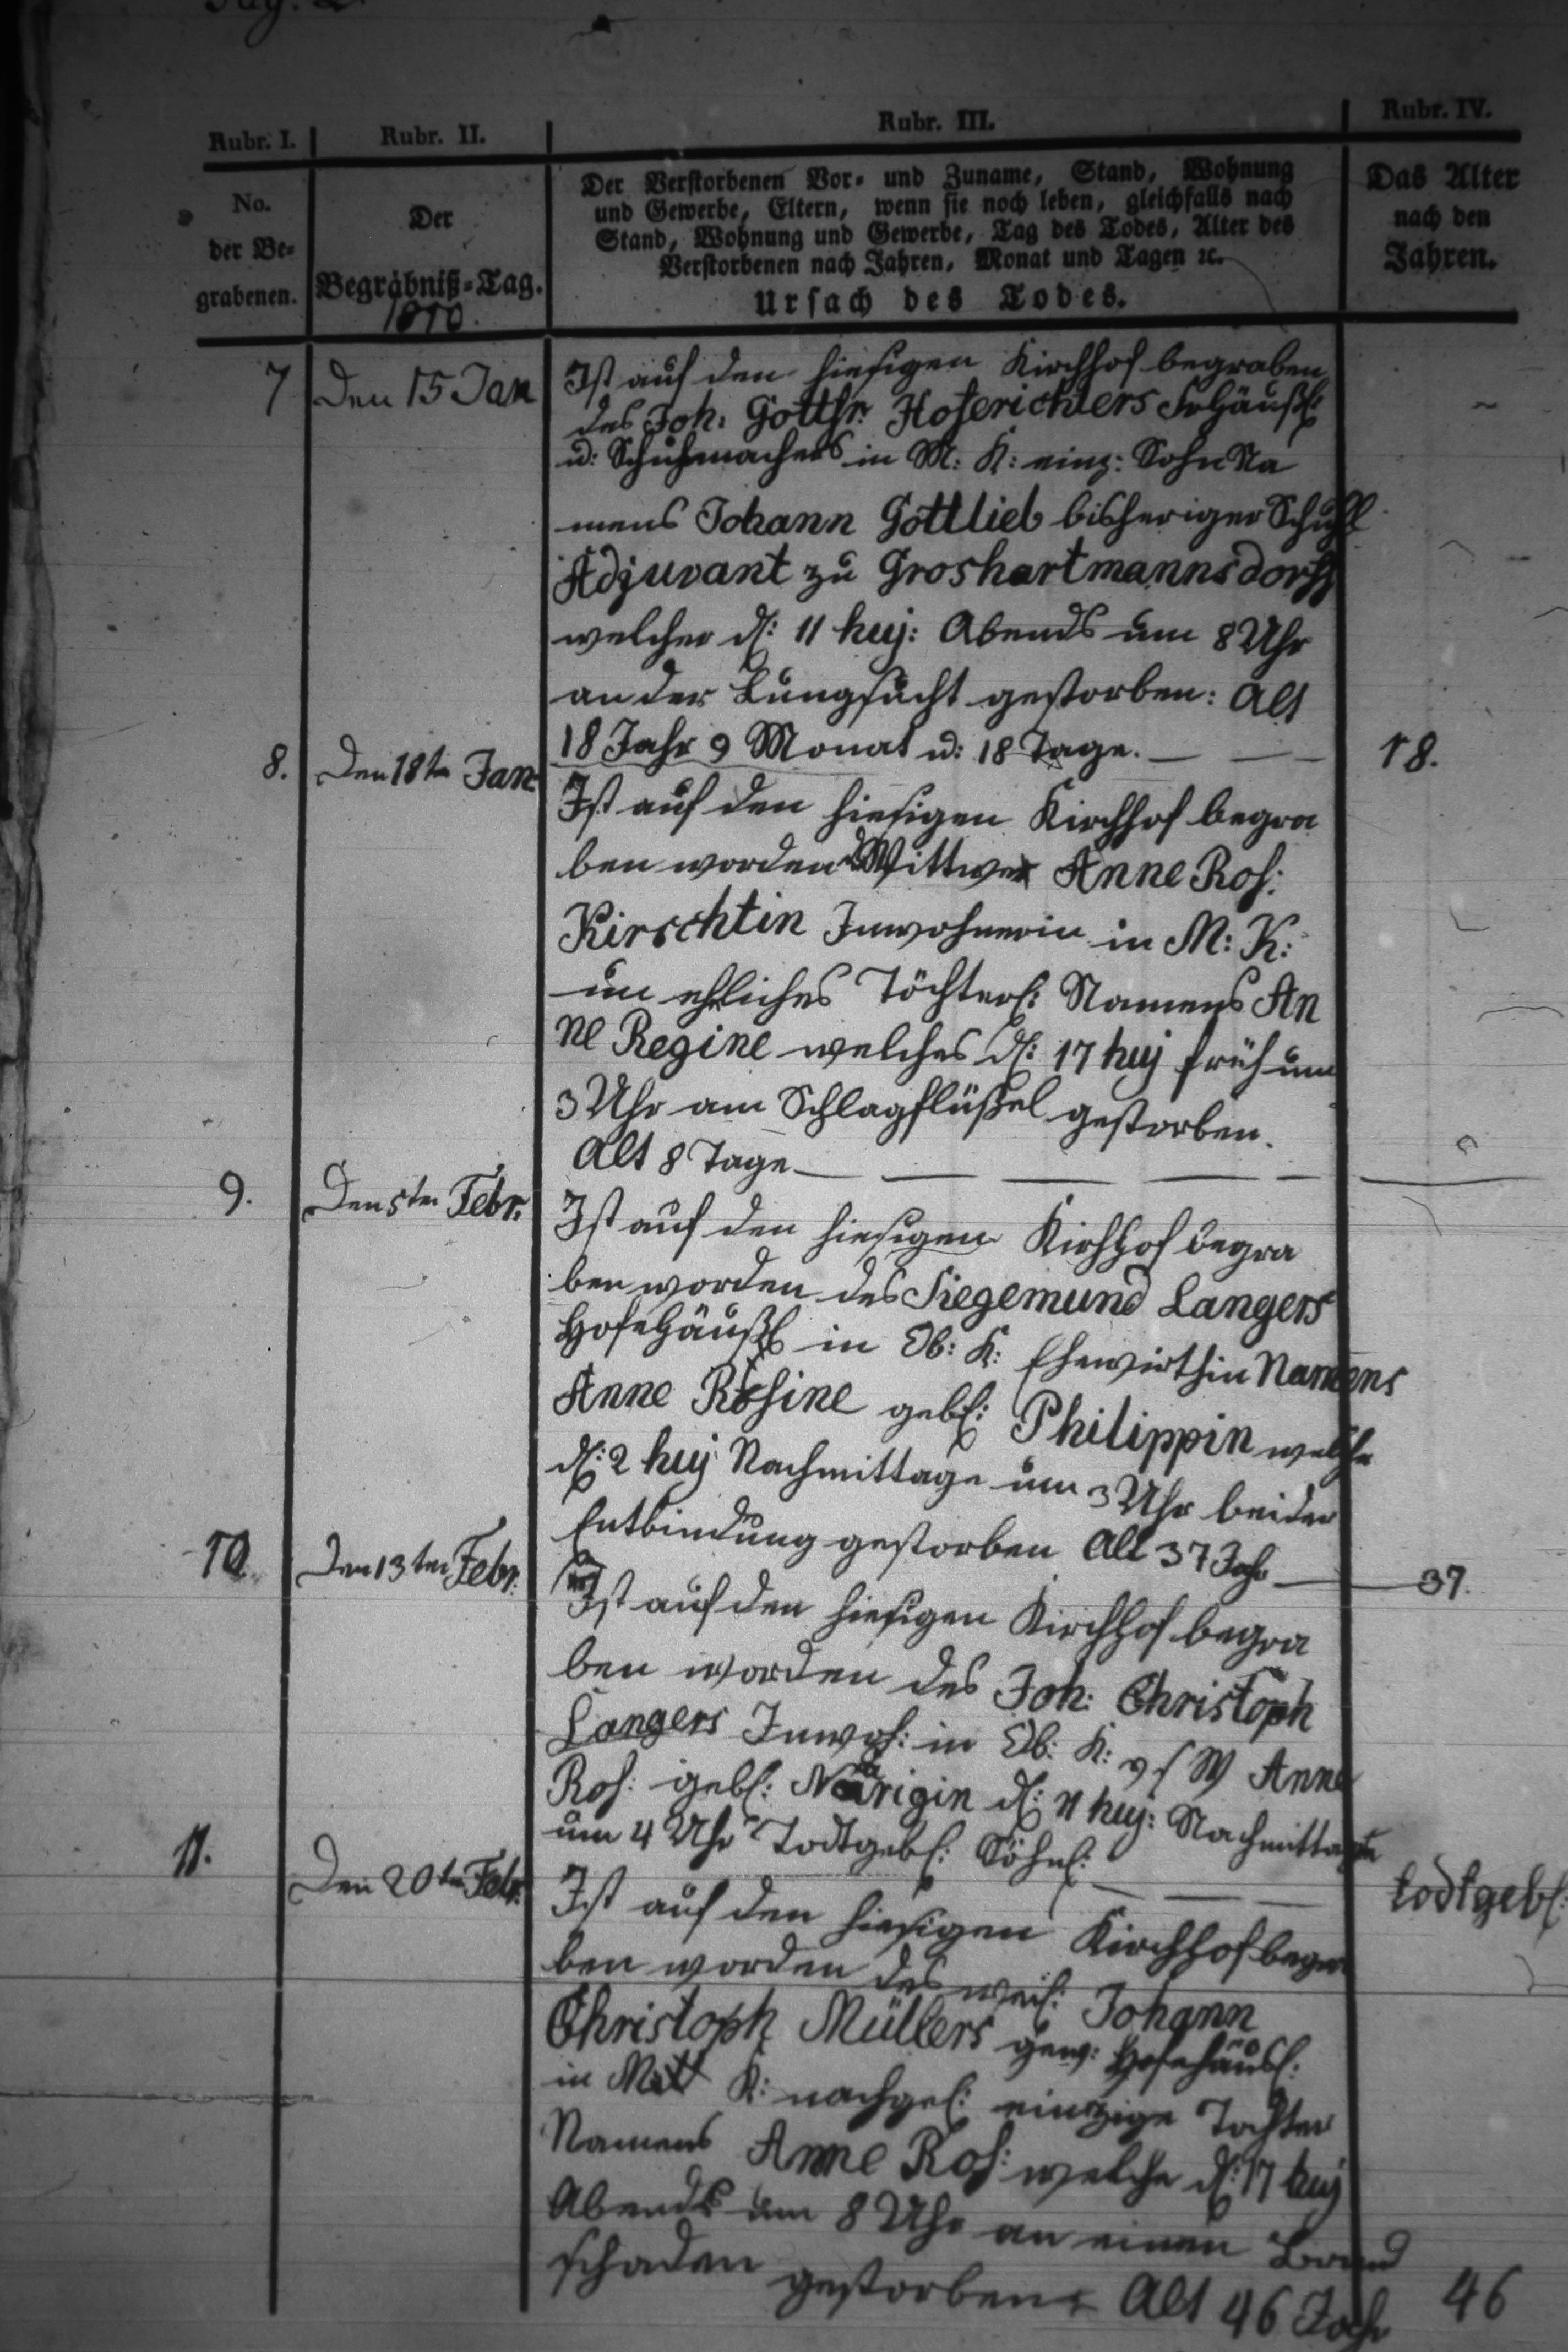 Pag. 2
Rubr. I. Rubr. II. Rubr. III. Rubr. IV.
No.
der Be-
grabenen.
Der
Begräbniß-Tag.
1810.
Der Verstorbenen Vor- und Zuname, Stand, Wohnung
und Gewerbe, Eltern, wenn sie noch leben, gleichfalls nach
Stand, Wohnung und Gewerbe, Tag des Todes, Alter des
Verstorbenen nach Jahren, Monat und Tagen ꝛc.
Ursach des Todes.
Das Alter
nach den
Jahren.
7 Den 15 Jan Ist auf den hiesigen Kirchhof begraben
des Joh: Gottfr. Hoferichters Frhäußl:
u: Schuhmachers in M: K: einz: Sohn Na
mens Johann Gottlieb bisheriger Schull
Adjuvant zu Groshartmannsdorff
welcher d: 11 huj: Abends um 8 Uhr
an der Lungsucht gestorben: Alt
18 Jahr 9 Monat u: 18 Tage. 18.
8. Den 18ten Jan: Ist auf den hiesigen Kirchhof begra
ben worden d Wittwe Anne Ros:
Kirschtin Inwohnerin in M: K:
un ehliches Töchterl: Namens An
ne Regine welches d: 17 huj früh um
3 Uhr am Schlagflüßel gestorben.
Alt 8 Tage
9. Den 5ten Febr: Ist auf den hiesigen Kirchhof begra
ben worden des Siegemund Langers
Hofehäußl in Ob: K: Ehewirthin Namens
Anne Rosine gebl: Philippin welche
d: 2 huj Nachmittage um 3 Uhr bei der
Entbindung gestorben Alt 37 Jahr 37.
10. Den 13ten Febr: Ist auf den hiesigen Kirchhof begra
ben worden des Joh: Christoph
Langers Inwoh: in Ob: K: v s W Anne
Ros: gebl: Närigin d: 11 huj: Nachmittage
um 4 Uhr Todtgebl: Söhnl: todtgebl:
11. Den 20ten Febr: Ist auf den hiesigen Kirchhof begra
ben worden des weil: Johann
Christoph Müllers gew: Hofehäusl:
in Mitt K: nachgel: einzige Tochter
Namens Anne Ros: welche d: 17 huj
Abends um 8 Uhr an einen Brand
schaden gestorben Alt 46 Jahr 46